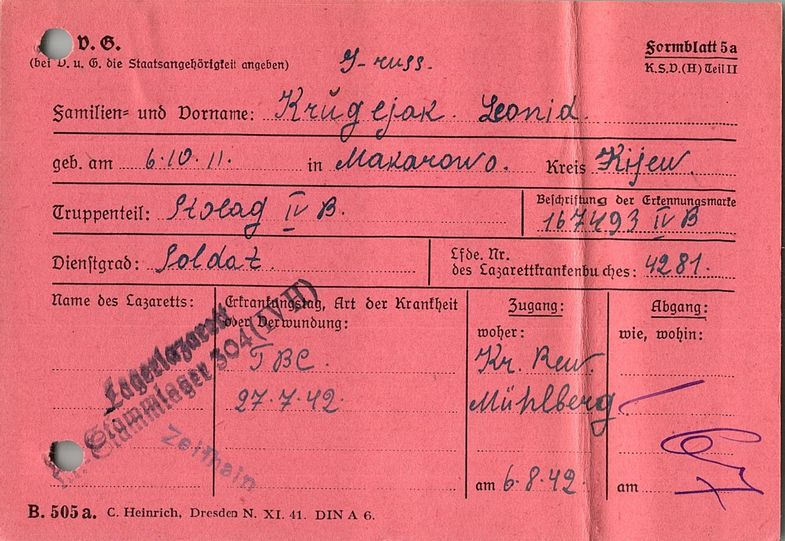 V. G.
(bei V. u. G. die Staatsangehörigkeit angeben)
J-russ.
Formblatt 5a
K.S.D.(H) Teil II
Familien- und Vorname: Krügejak. Leonid.
geb. am 6.10.11. in Makarowo. Kreis Kijew
Truppenteil: Stalag IV B.
Beschriftung der Erkennungsmarke
167493 IV B
Dienstgrad: Soldat.
Lfde. Nr.
des Lazarettkrankenbuches: 4281.
Name des Lazaretts:
Lagerlazarett
Stammlager 304 (IV H)
Zeithain
Erkrankungstag, Art der Krankheit
oder Verwundung:
TBC.
27.7.42
Zugang:
woher:
Kr. Rev.
Mühlberg
am 6.8.42
Abgang:
wie, wohin:
am
B. 505a. C. Heinrich, Dresden N. XI. 41. DIN A 6.